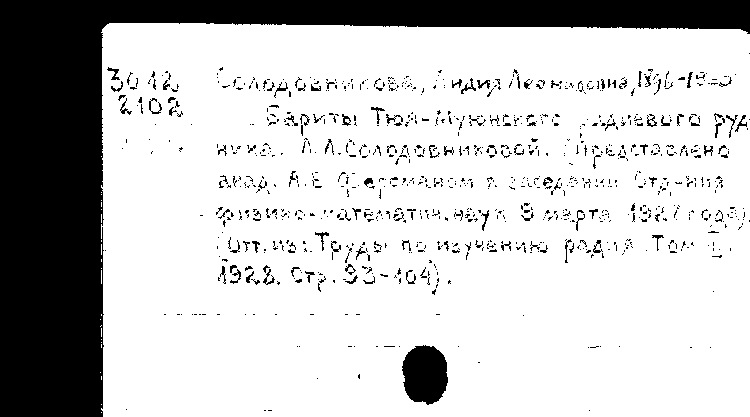 3012 Солодовникова, Лидия Леонидовна, 1896-19
2102
Бариты Тюя-Муюнского радиевого руд-
ника. Л.Л.Солодовниковой. (Представлено
акад. А.Е. Ферсманом в заседании Отд-ния
физико-математич. наук 9 марта 1927 года).
(Отт. из: Труды по изучению радия. Том
1928. Стр. 93-104).